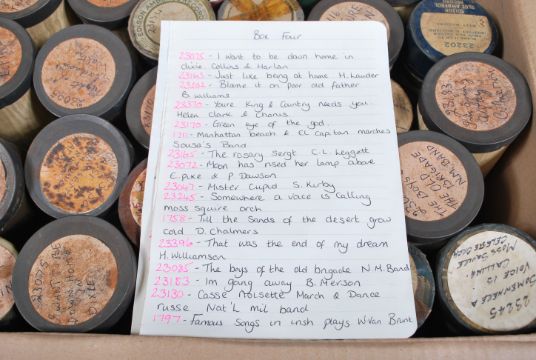 Box Four
23075 - I want to be down home in
dixie Collins & Harlan
23143 - Just like being at home H. Lauder
23202 - Blame it on Poor old father
B. Williams
23370 - Youre King & Country needs you
Helen Clark & Chorus
23170 - Green eye of the god.
1211 - Manhattan beach & El Captain marches
Sousa's Band
23165 - The rosary sergt C. Leggett
23072 - Moon has rised her lamp above
E. pike & P Dawson
23047 - Mister Cupid S. Kirby
23245 - Somewhere a voice is calling
moss squire orch
1758 - Till the Sands of the desert grow
cold D. Chalmers
23396 - That was the end of my dream
H. Williamson
23085 - The boys of the old brigade N.M. Band
23183 - Im going away B. Aterson
23130 - Casse Noisette March & Dance
russe Nat'L mil band
1797 - Famous Songs in irish plays W. Van Brunt
23202
23183
23075
I WANT TO BE
DOWN HOME
DIXIE
THE BOYS
BRIGADE
N.M. BAND
23245
SOMEWHERE A
VOICE IS
CALLING
MOSS SQUIRE
CELESTE OCT